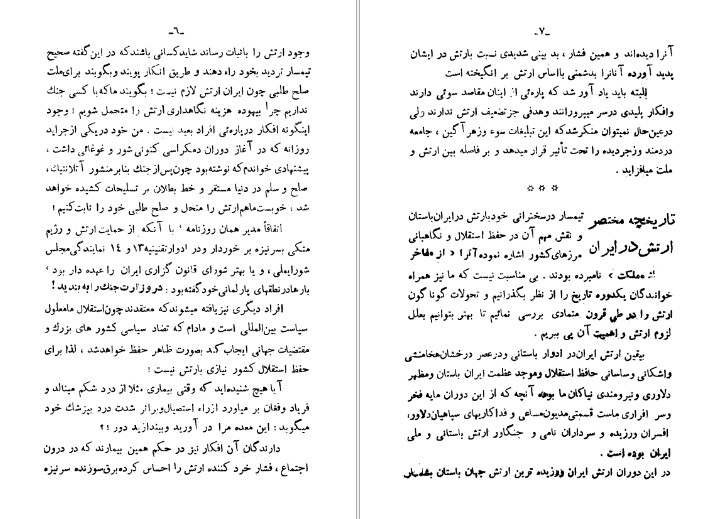 -٦-
وجود ارتش را باثبات رساند شاید کسانی باشند که در این گفته صحیح
تیمسار تردید بخود راه دهند و طریق انکار پویند و بگویند برای ملت
صلح طلبی چون ایران ارتش لازم نیست؛ بگویند ما که با کسی جنگ
نداریم چرا بیهوده هزینه نگاهداری ارتش را متحمل شویم؛ وجود
اینگونه افکار در پاره‌ئی افراد بعید نیست. من خود در یکی از جراید
روزانه که در آغاز دوران دمکراسی کنونی شور و غوغائی داشت،
پیشنهادی خواندم که نوشته بود چون پس از جنگ بنابر منشور آتلانتیک،
صلح و سلم در دنیا مستقر و خط بطلان بر تسلیحات کشیده خواهد
شد، خوبست ما هم ارتش را منحل و صلح طلبی خود را ثابت کنیم!
اتفاقاً مدیر همان روزنامه، با آنکه از حمایت ارتش و رژیم
متکی بسرنیزه بر خوردار و در ادوار تقنینیه ۱۳ و ۱٤ نمایندگی مجلس
شورایملی، و یا بهتر شورای قانون گزاری ایران را عهده دار بود،
بارها در نطقهای پارلمانی خود گفته بود: در وزارت جنگ را به بندید!
افراد دیگری نیز یافته میشوند که معتقدند چون استقلال ما معلول
سیاست بین‌المللی است و مادام که تضاد سیاسی کشور های بزرگ و
مقتضیات جهانی ایجاب کند بصورت ظاهر حفظ خواهد شد، لذا برای
حفظ استقلال کشور نیازی بارتش نیست؛
آیا هیچ شنیده‌اید که وقتی بیماری مثلا از درد شکم مینالد و
فریاد و فغان بر میاورد از راه استیصال و براثر شدت درد بپزشك خود
میگوید: این معده مرا در آورید و بیندازید دور؟!
دارندگان آن افکار نیز در حکم همین بیمارند که در درون
اجتماع، فشار خرد کننده ارتش را احساس کرده برق سوزنده سرنیزه
-٧-
آنرا دیده‌اند و همین فشار، بد بینی شدیدی نسبت بارتش در ایشان
پدید آورده آنانرا بدشمنی با اساس ارتش بر انگیخته است
البته باید یاد آور شد که پاره‌ئی از اینان مقاصد سوئی دارند
و افکار پلیدی در سر میپرورانند و هدفی جز تضعیف ارتش ندارند ولی
در عین حال نمیتوان منکر شد که این تبلیغات سوء و زهر آگین، جامعه
دردمند و زجر دیده را تحت تأثیر قرار میدهد و بر فاصله بین ارتش و
ملت میافزاید.
* * *
تاریخچه مختصر ارتش در ایران
تیمسار در سخنرانی خود بارتش در ایران باستان
و نقش مهم آن در حفظ استقلال و نگاهبانی
مرزهای کشور اشاره نموده آنرا «از مفاخر
مملکت» نامبرده بودند. بی مناسبت نیست که ما نیز همراه
خوانندگان یکدوره تاریخ را از نظر بگذرانیم و تحولات گوناگون
ارتش را در طی قرون متمادی بررسی نمائیم تا بهتر بتوانیم بعلل
لزوم ارتش و اهمیت آن پی ببریم.
بیقین ارتش ایران در ادوار باستانی و در عصر درخشان هخامنشی
واشکانی و ساسانی حافظ استقلال و موجد عظمت ایران باستان و مظهر
دلاوری و نیرومندی نیاکان ما بوده آنچه که از این دوران مایه فخر
و سر افرازی ماست قسمتی مدیون مساعی و فداکاریهای سپاهیان دلاور،
افسران ورزیده و سرداران نامی و جنگاور ارتش باستانی و ملی
ایران بوده است.
در این دوران ارتش ایران ورزیده ترین ارتش جهان باستان بشمار